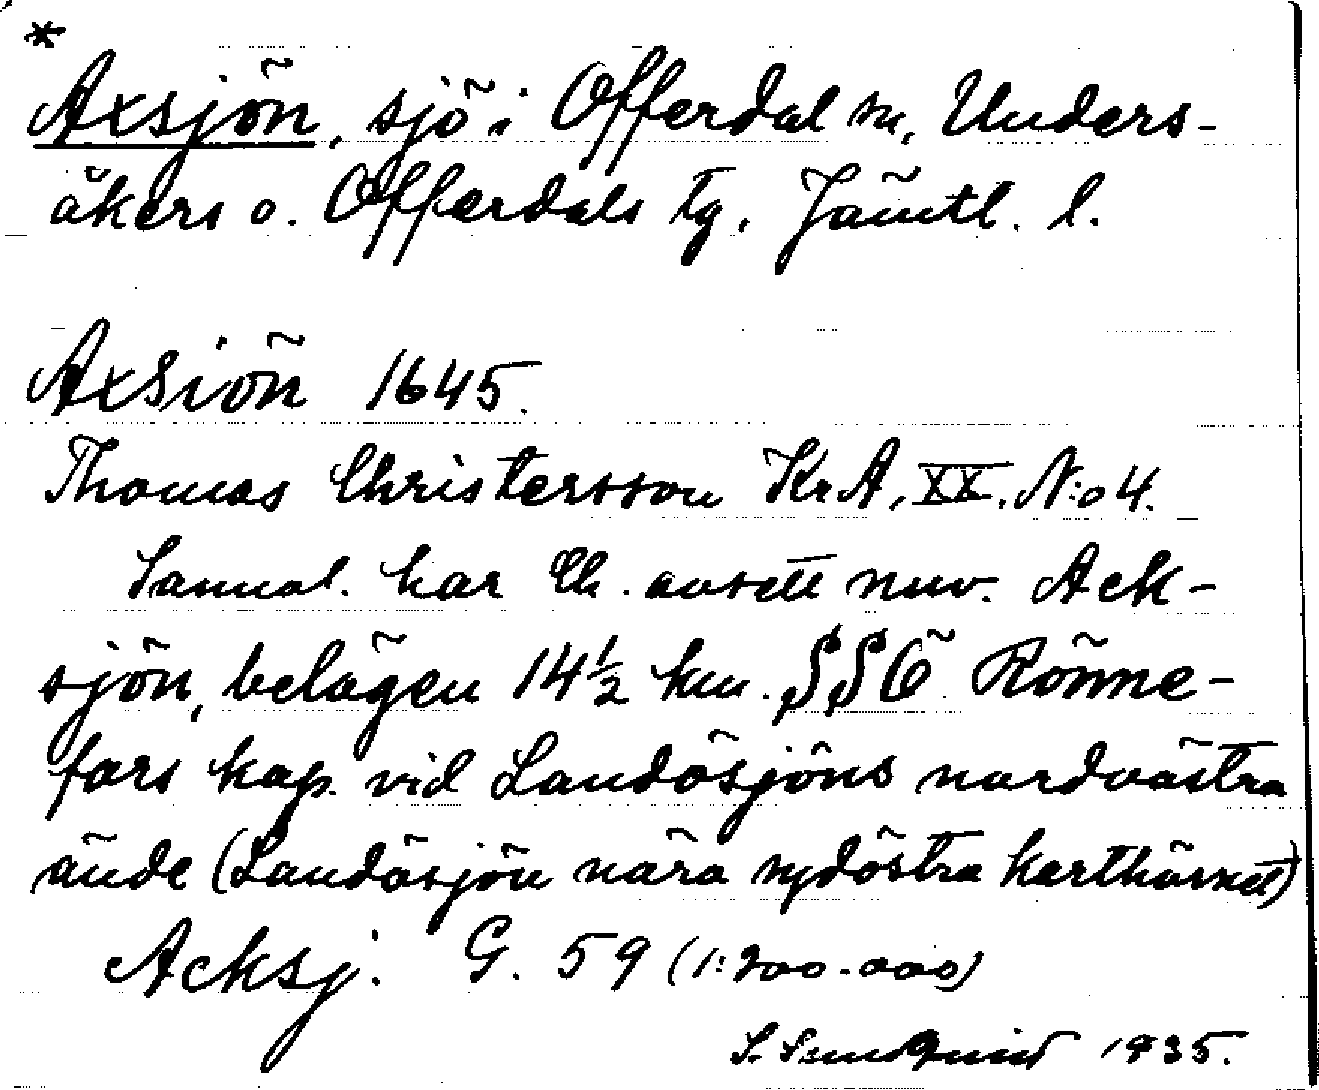 *
Axsjön, sjö i Offerdal sn, Unders-
åkers o. Offerdals tg. Jämtl. l.
AxSiön 1645.
Thomas Christersson KrA, XX. N:o 4.
Sannol. har Ch. avsett nuv. Ack-
sjön, belägen 14½ km. SSÖ Rönne-
fors kap. vid Landösjöns nordvästra
ände (Landösjön nära sydöstra karthörnet)
Acksj. G. 59 (1:200.000)
S. Sundquist 1935.